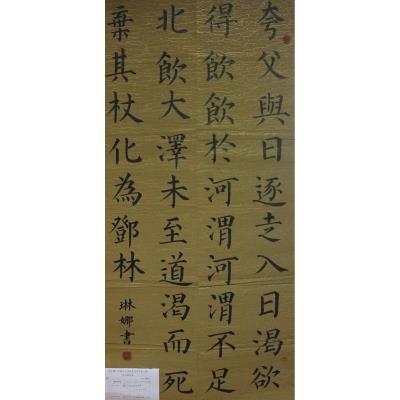 夸父與日逐走入日渴欲
得飲飲於河渭河渭不足
北飲大澤未至道渴而死
棄其杖化為鄧林
琳娜書